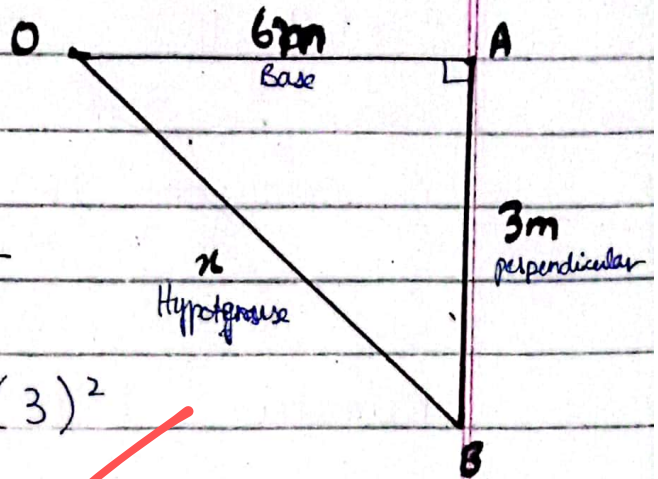 O 6m A
Base
3m
perpendicular
x
Hypotenuse
(3)²
B